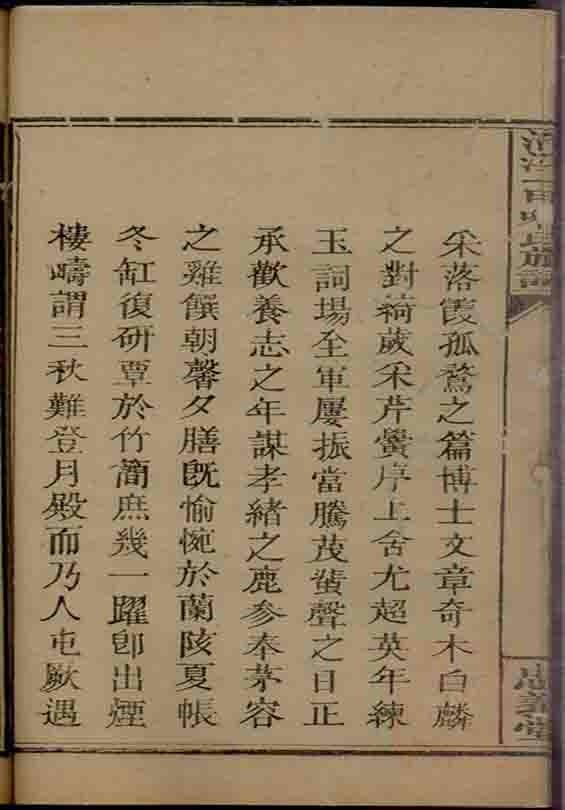 采落霞孤鶩之篇博士文章奇木白麟
之對綺歲采芹黌序上舍尤超英年練
玉詞場全軍屢振當騰茂蜚聲之日正
承歡養志之年謀孝緒之鹿參奉茅容
之雞饌朝馨夕膳旣愉惋於蘭陔夏帳
冬缸復研覃於竹簡庶幾一躍卽出煙
樓疇謂三秋難登月殿而乃人屯厥遇
忠義堂